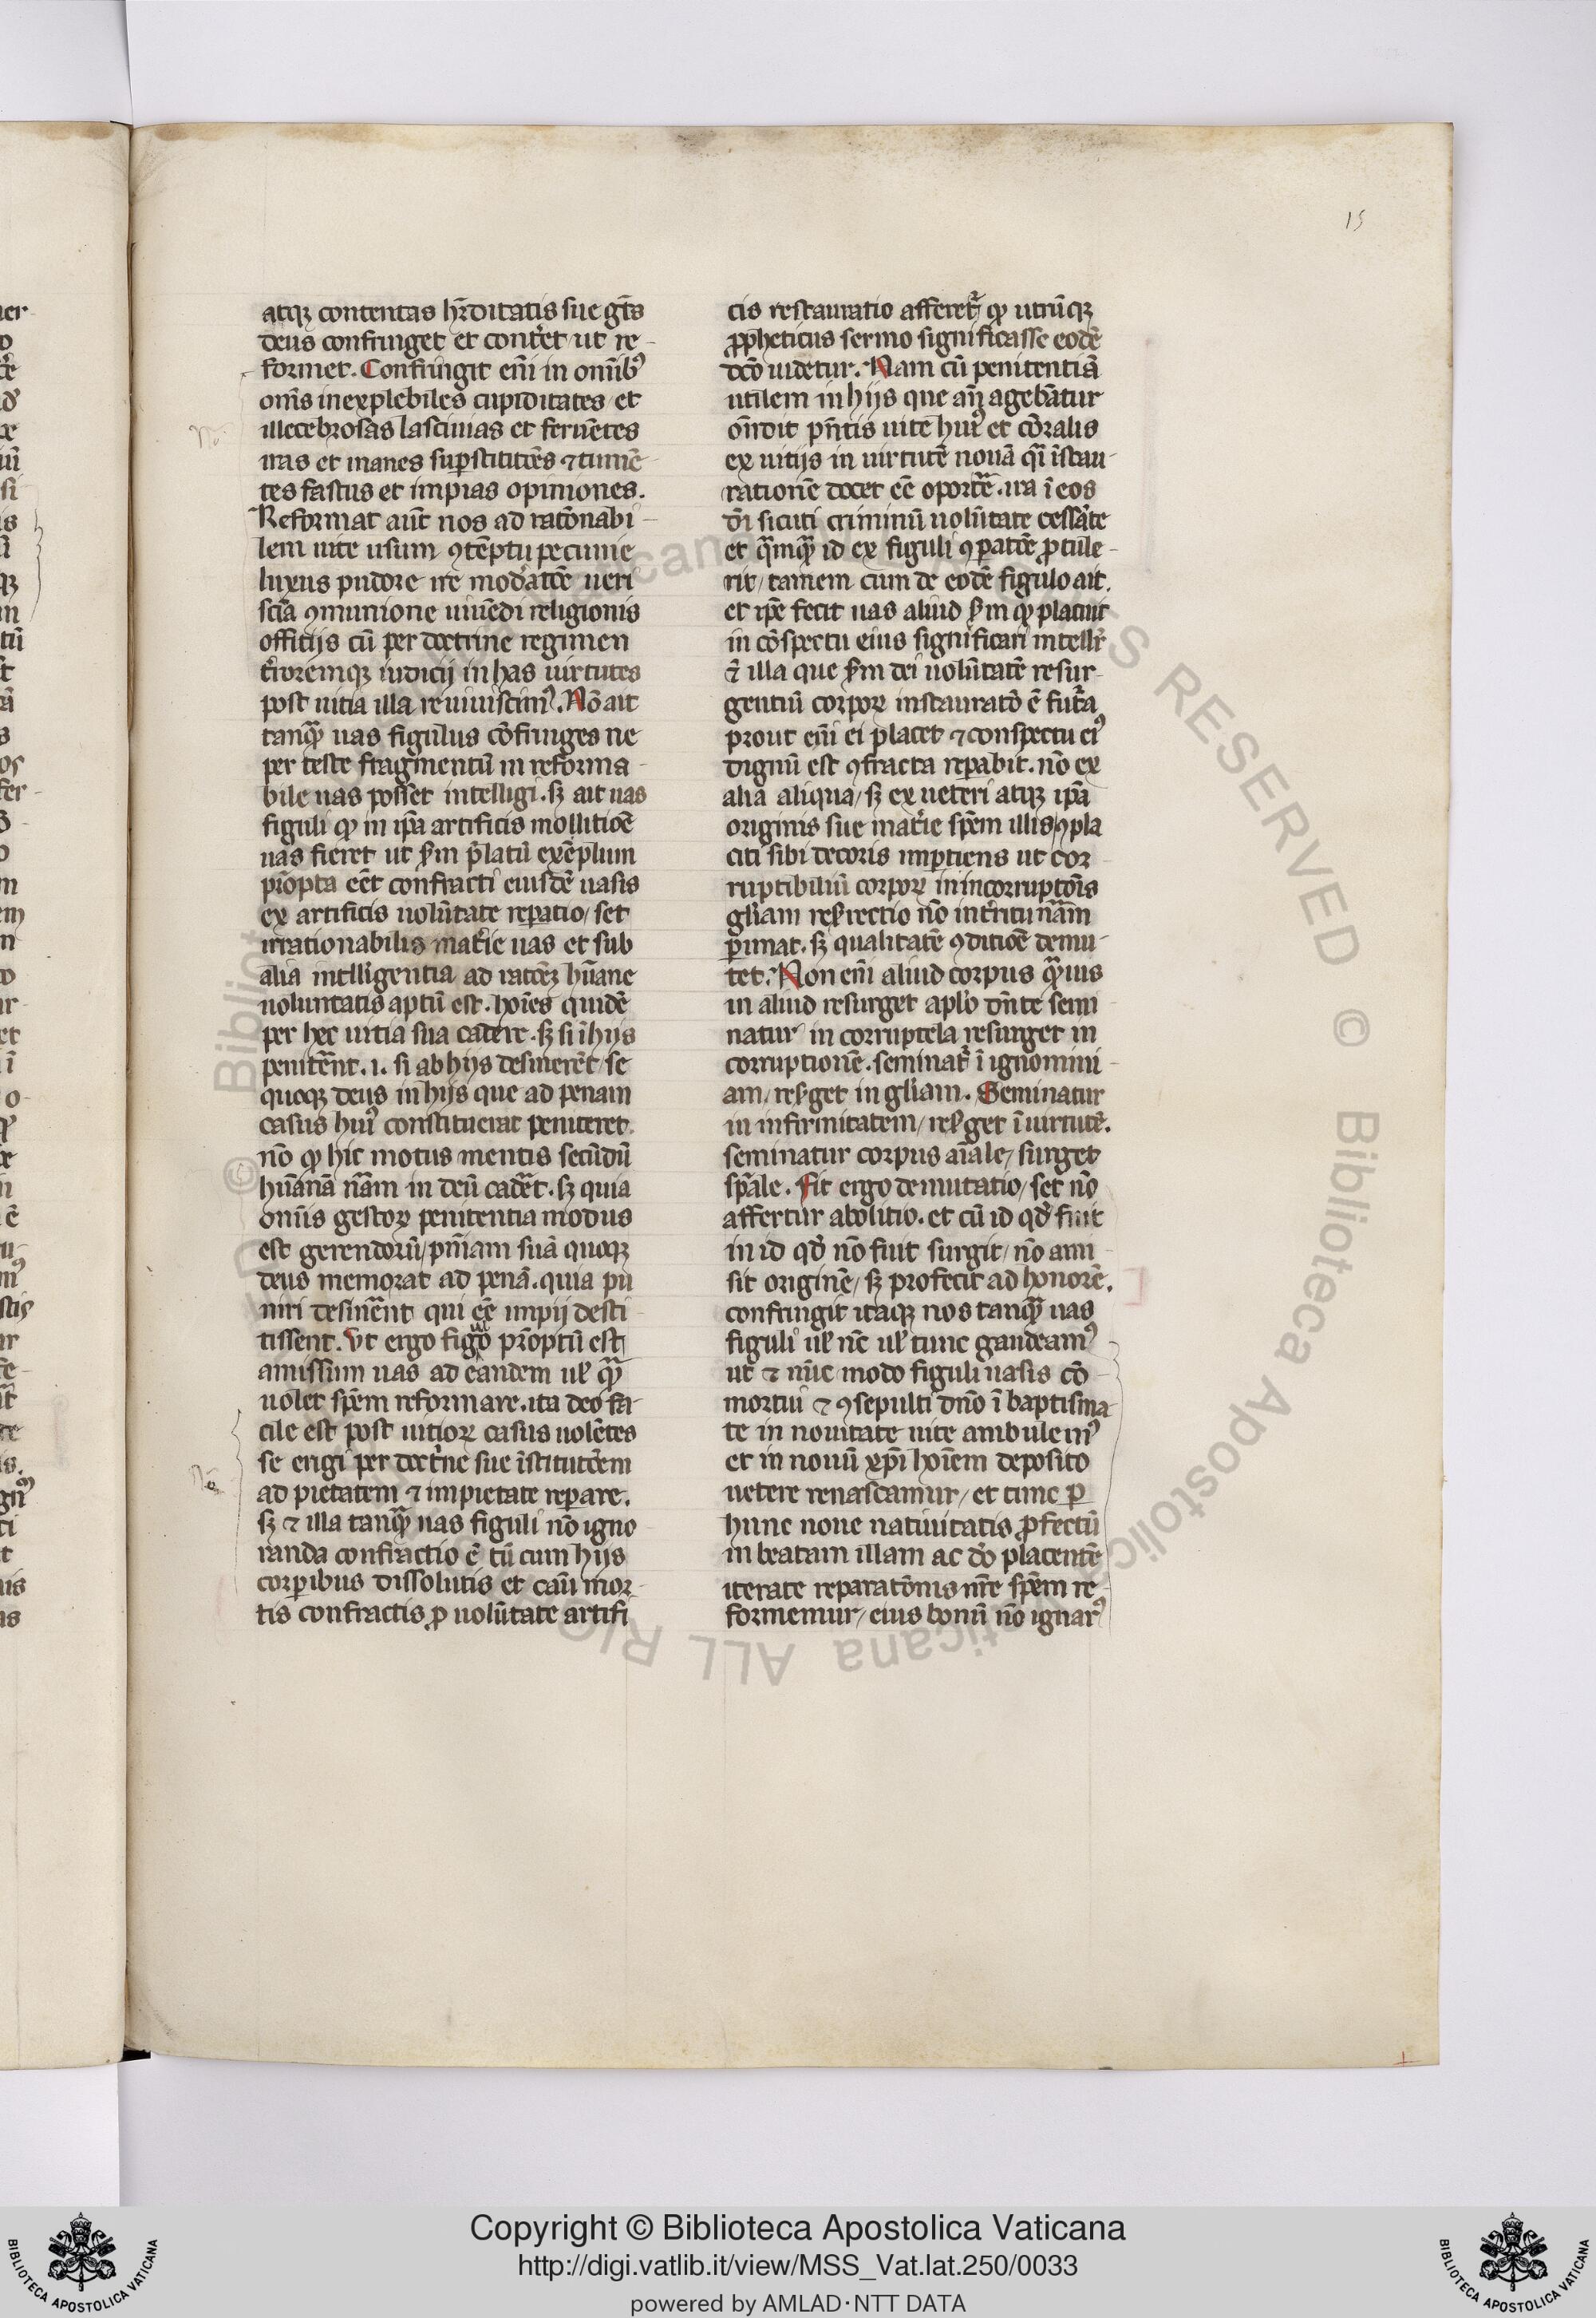 15
atqꝫ contentas hr̄ditatis sue gn̄s
deus confringet et cont̾et ut re-
formet. Confringit em̄ in om̄ibꝰ
om̄s inexplebiles cupiditates et
illecebrosas lasciuias et feruētes
iras et inanes suꝑstititōes ⁊ tumē-
tes fastus et impias opiniones.
Reformat aut̄ nos ad ratōnabi-
lem uite usum ꝯtēptu pecunie
luxus pudore ire mod̾atōe ueri
scīa ꝯmunione uiuēdi religionis
officijs cū per doctrine regimen
t̾roremqꝫ iudicij in has uirtutes
post uitia illa reuiuiscimꝰ. Nō ait
tanqͣꝫ uas figulus cōfringes ne
per teste fragmentū in reforma-
bile uas posset intelligi. sꝫ ait uas
figuli qͦ in ip̄a artificis mollitiōe
uas fieret ut ẜm p̄latū exēplum
prōpta eēt confracti eiusdē uasis
ex artificis uolūtate reꝑatio/ set
irrationabilis mat̾ie uas et sub
alia intelligentia ad ratōeꝫ hūane
uoluntatis aptū est. hoīes quidē
per hec uitia sua cadere. sꝫ si ī hijs
peniterent. i. si ab hijs desinerēt/ se
quoqꝫ deus in hijs que ad penam
casus huiꝰ constituerat peniteret.
nō qͦ hic motus mentis secūdū
hūanā nām in deū cadēt. sꝫ quia
om̄is gestoꝝ penitentia modus
est gerendorū/ pn̄iam suā quoqꝫ
deus memorat ad penā. quia pu
niri desinent qui eē impij desti-
tissent. Vt ergo figlo prōptū est
amissum uas ad eandem uel qͣꝫ
uolet spēm reformare. ita deo fa-
cile est post uitioꝝ casus uolētes
se erigi per doct̾ne sue īstitutōem
ad pietatem ⁊ impietate reꝑare.
sꝫ ⁊ illa tanqͣꝫ uas figuli nō igno
randa confractio ē tū cum hijs
corꝑibus dissolutis et casu mor-
tis confractis ꝓ uolūtate artifi
cis restauratio afferet̾ qͦ utrūqꝫ
ꝓpheticus sermo significasse eodē
dc̄o uidetur. Nam cū penitentiā
utilem in hijs que an̄ agebātur
on̄dit pn̄tis uite huiꝰ et cōralis
ex uitijs in uirtutē nouā qͣi īstau-
rationē docet eē oportē. ita ī eos
dn̄i sicuti criminū uolūtate cessāte
et qͣmqͣꝫ id ex figuli ꝯꝑatōe ꝓtule-
rit/ tamen cum de eodē figulo ait.
et ip̄e fecit uas aliud ẜm qͦ placuit
in cōspectu eius significari intellr̄
⁊ illa que ẜm dei uolūtatē resur-
gentiū corpoꝝ instauratō ē fut̾a
prout em̄ ei placet ⁊ conspectu eiꝰ
dignū est ꝯfracta reꝑabit. nō ex
alia aliqua/ sꝫ ex ueteri atqꝫ ip̄a
originis sue mat̾ie spēm illis ꝯpla
citi sibi decoris imꝑtiens ut cor-
ruptibiliū corpoꝝ in incorruptōis
gl̄iam resꝰrectio nō int̾itu nām
ꝑimat. sꝫ qualitatē ꝯditiōe demu-
tet. Non em̄ aliud corpus qͣꝫuis
in aliud resurget aplō dn̄te semi
natur in corruptela resurget in
corruptionē. seminat̾ ī ignomini-
am/ resꝰget in gl̄iam. Seminatur
in infirmitatem/ resꝰget ī uirtutē.
seminatur corpus aīale/ surget
spāle. Fit ergo demutatio/ set nō
affertur abolitio. et cū id qd̄ fuit
in id qd̄ nō fuit surgit/ nō ami-
sit originē/ sꝫ profecit ad honorē.
confringit itaqꝫ nos tanqͣꝫ uas
figuli uel nc̄ uel tunc gaudeamꝰ
ut ⁊ nūc modo figuli uasis cō-
mortui ⁊ ꝯsepulti dn̄o ī baptisma-
te in nouitate uite ambulemꝰ
et in nouū xp̄i hoīem deposito
uetere renascamur/ et tunc ꝑ
hunc noue natiuitatis ꝓfectū
in beatam illam ac dō placentē
iterate reparatōnis nr̄e spēm re-
formemur/ eius bonū nō ignarꝰ
Copyright © Biblioteca Apostolica Vaticana
http://digi.vatlib.it/view/MSS_Vat.lat.250/0033
powered by AMLAD·NTT DATA
BIBLIOTECA APOSTOLICA VATICANA
BIBLIOTECA APOSTOLICA VATICANA